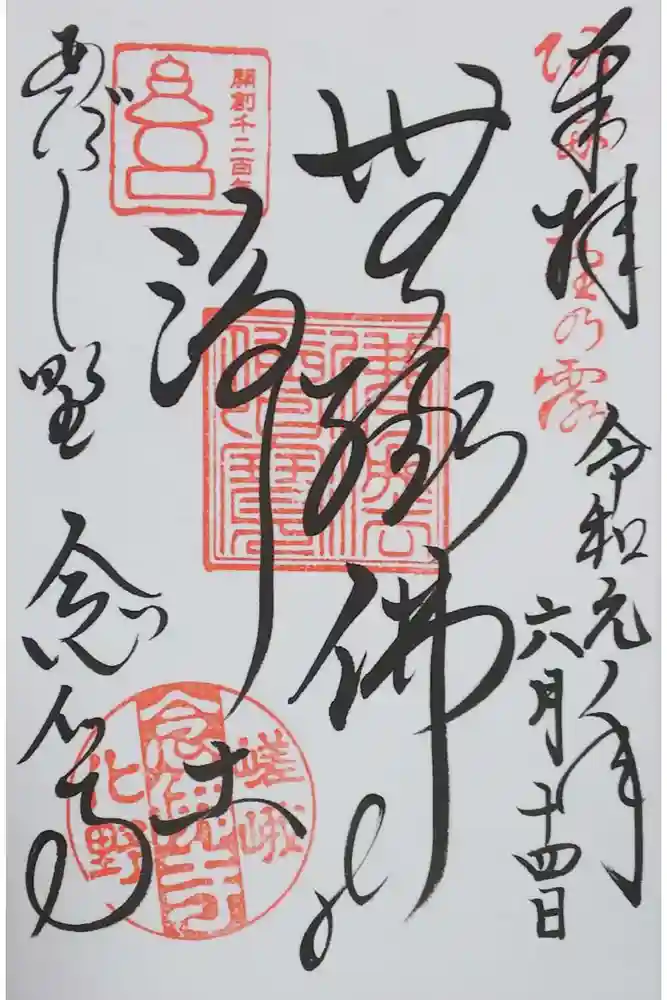 奉拝
令和元年
六月十四日
無縁佛の
浄土
あだし野 念仏寺
開創千二百年
嵯峨
念佛寺
化野